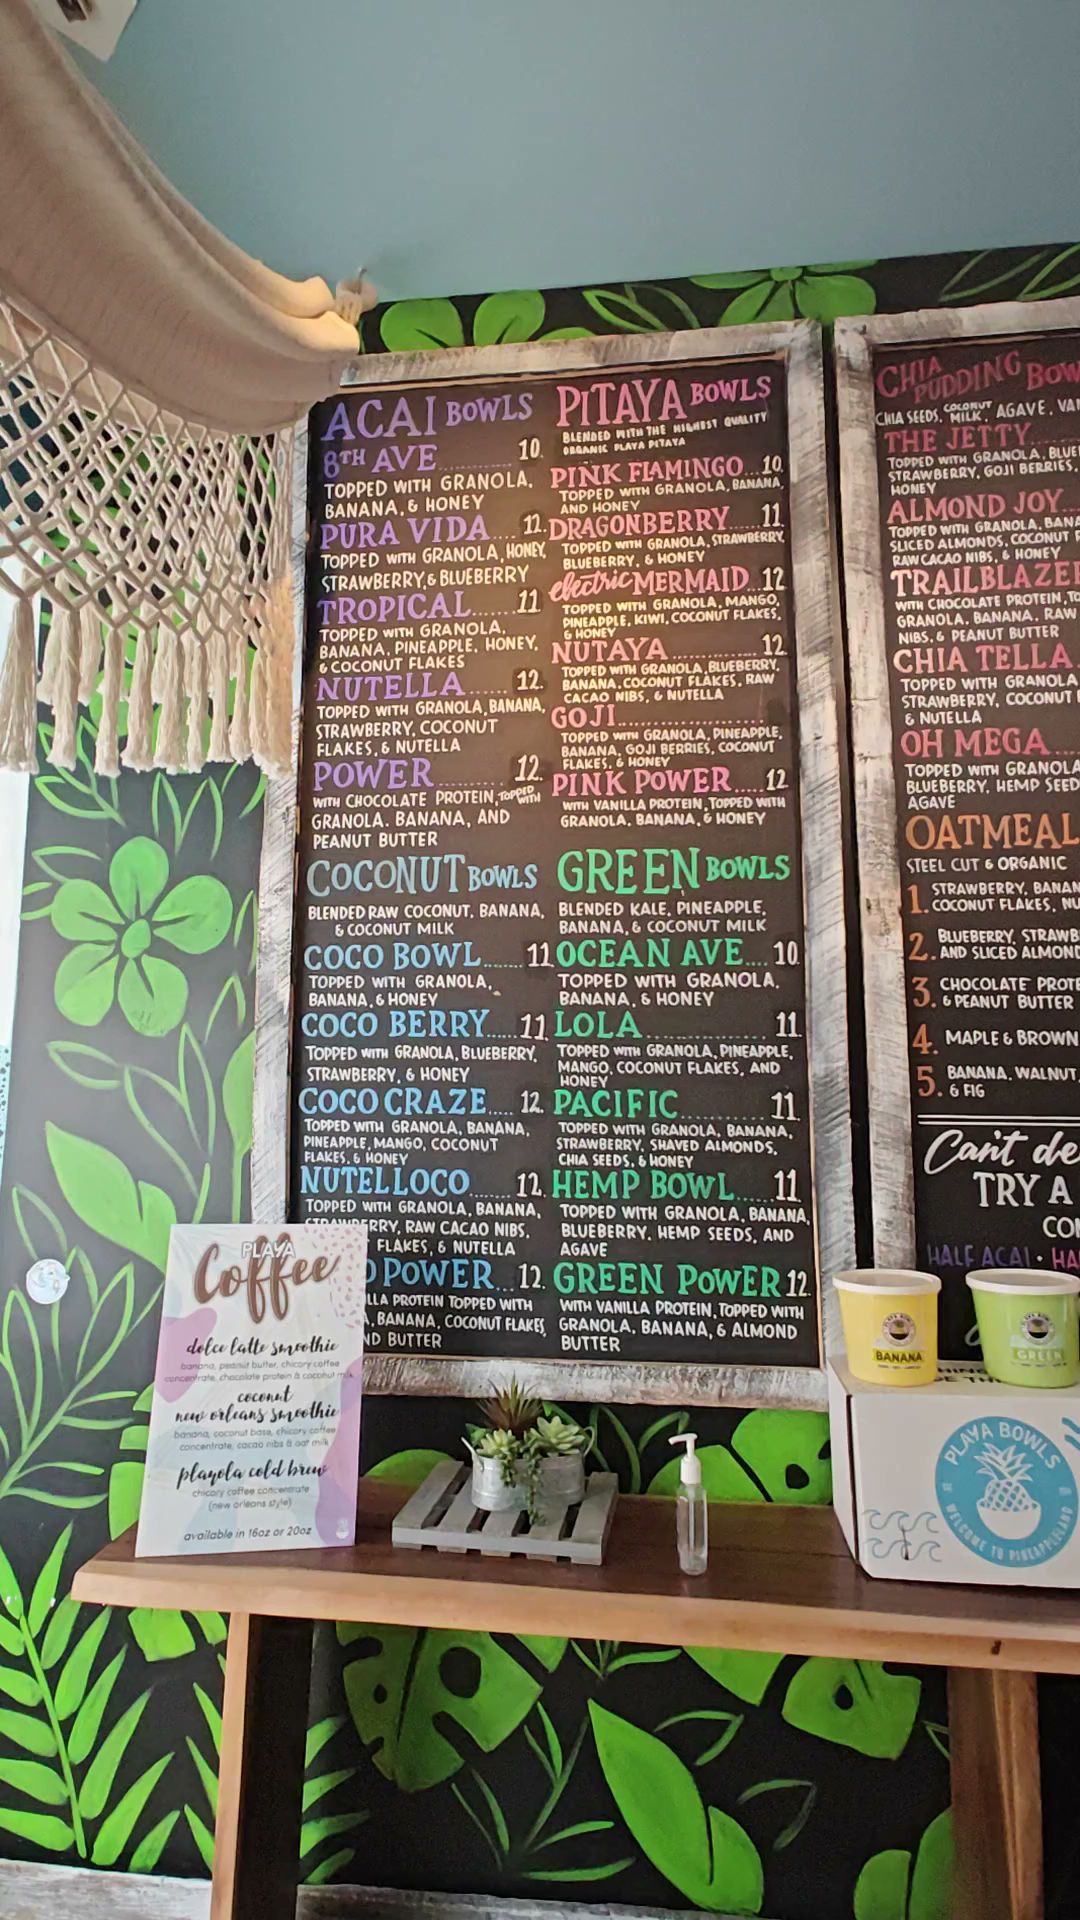 ACAI BOWLS
8TH AVE.......... 10.
TOPPED WITH GRANOLA,
BANANA, & HONEY
PURA VIDA.... 12.
TOPPED WITH GRANOLA, HONEY,
STRAWBERRY, & BLUEBERRY
TROPICAL....... 11
TOPPED WITH GRANOLA,
BANANA, PINEAPPLE, HONEY,
& COCONUT FLAKES
NUTELLA...... 12.
TOPPED WITH GRANOLA, BANANA,
STRAWBERRY, COCONUT
FLAKES, & NUTELLA
POWER.......... 12.
WITH CHOCOLATE PROTEIN, TOPPED WITH
GRANOLA. BANANA, AND
PEANUT BUTTER
COCONUT BOWLS
BLENDED RAW COCONUT, BANANA,
& COCONUT MILK
COCO BOWL...... 11
TOPPED WITH GRANOLA,
BANANA, & HONEY
COCO BERRY..... 11
TOPPED WITH GRANOLA, BLUEBERRY,
STRAWBERRY, & HONEY
COCO CRAZE..... 12.
TOPPED WITH GRANOLA, BANANA,
PINEAPPLE, MANGO, COCONUT
FLAKES, & HONEY
NUTELLOCO....... 12.
TOPPED WITH GRANOLA, BANANA,
STRAWBERRY, RAW CACAO NIBS,
FLAKES, & NUTELLA
POWER... 12.
PROTEIN TOPPED WITH
BANANA, COCONUT FLAKES,
BUTTER
PITAYA BOWLS
BLENDED WITH THE HIGHEST QUALITY
ORGANIC PLAYA PITAYA
PINK FLAMINGO... 10.
TOPPED WITH GRANOLA, BANANA,
AND HONEY
DRAGONBERRY..... 11
TOPPED WITH GRANOLA, STRAWBERRY,
BLUEBERRY, & HONEY
electric MERMAID.. 12
TOPPED WITH GRANOLA, MANGO,
PINEAPPLE, KIWI, COCONUT FLAKES,
& HONEY
NUTAYA............... 12.
TOPPED WITH GRANOLA, BLUEBERRY,
BANANA, COCONUT FLAKES, RAW
CACAO NIBS, & NUTELLA
GOJI......................
TOPPED WITH GRANOLA, PINEAPPLE,
BANANA, GOJI BERRIES, COCONUT
FLAKES, & HONEY
PINK POWER..... 12
WITH VANILLA PROTEIN, TOPPED WITH
GRANOLA. BANANA, & HONEY
GREEN BOWLS
BLENDED KALE, PINEAPPLE,
BANANA, & COCONUT MILK
OCEAN AVE.... 10.
TOPPED WITH GRANOLA.
BANANA, & HONEY
LOLA................ 11.
TOPPED WITH GRANOLA, PINEAPPLE,
MANGO, COCONUT FLAKES, AND
HONEY
PACIFIC............ 11.
TOPPED WITH GRANOLA, BANANA,
STRAWBERRY, SHAVED ALMONDS,
CHIA SEEDS, & HONEY
HEMP BOWL..... 11
TOPPED WITH GRANOLA, BANANA,
BLUEBERRY, HEMP SEEDS, AND
AGAVE
GREEN POWER 12.
WITH VANILLA PROTEIN, TOPPED WITH
GRANOLA, BANANA, & ALMOND
BUTTER
CHIA PUDDING
CHIA SEEDS, COCONUT MILK, AGAVE,
THE JETTY.......
TOPPED WITH GRANOLA,
STRAWBERRY, GOJI BERRIES,
HONEY
ALMOND JOY....
TOPPED WITH GRANOLA,
SLICED ALMONDS, COCONUT
RAW CACAO NIBS, & HONEY
TRAILBLAZER
WITH CHOCOLATE PROTEIN,
GRANOLA, BANANA, RAW
NIBS, & PEANUT BUTTER
CHIA TELLA.
TOPPED WITH GRANOLA
STRAWBERRY, COCONUT
& NUTELLA
OH MEGA....
TOPPED WITH GRANOLA
BLUEBERRY, HEMP SEED
AGAVE
OATMEAL
STEEL CUT & ORGANIC
1. STRAWBERRY,
COCONUT FLAKES,
2. BLUEBERRY,
AND SLICED
3. CHOCOLATE
& PEANUT BUTTER
4. MAPLE & BROWN
5. BANANA, WALNUT
& FIG
Can't
TRY A
HALF ACAI •
PLAYA
Coffee
dolce latte smoothie
banana, peanut butter, chicory coffee
concentrate, chocolate protein & coconut milk
coconut
new orleans smoothie
banana, coconut base, chicory coffee
concentrate, cacao nibs & oat milk
playola cold brew
chicory coffee concentrate
(new orleans style)
available in 16oz or 20oz
BANANA
GREEN
PLAYA BOWLS
WELCOME TO PINEAPPLELAND